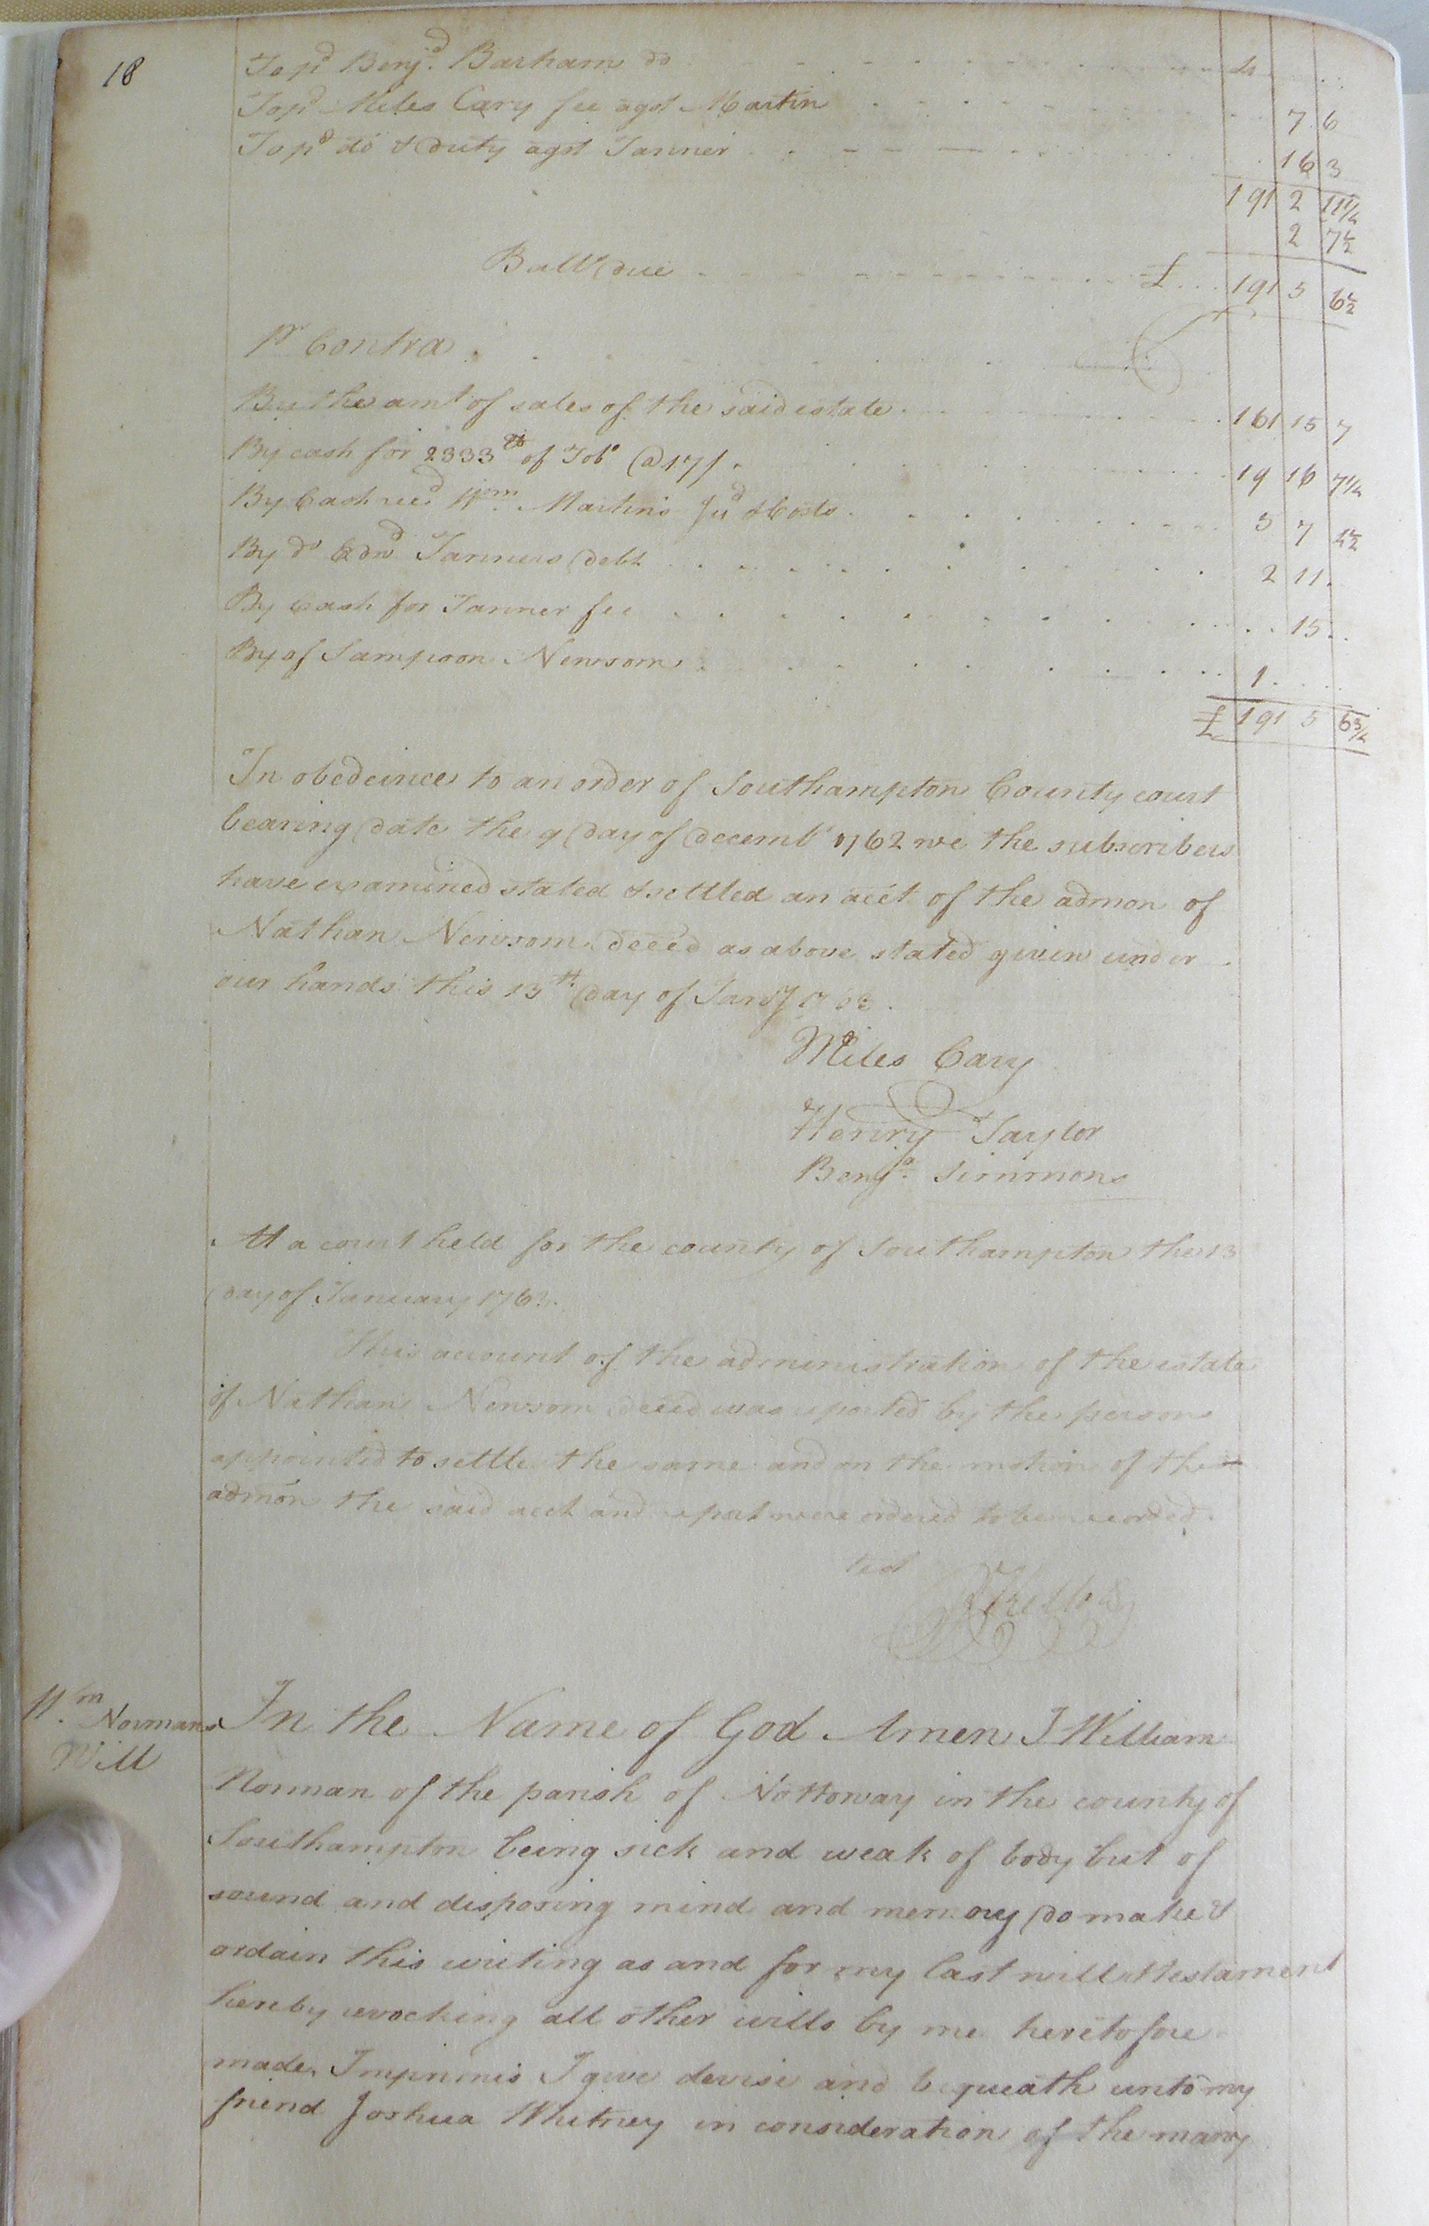 18
To pd Benj. Barham do
To pd Miles Cary fee agst Martin 7 6
To pd do & duty agst Tanner 16 3
191 2 11 1/4
2 7 1/2
Ball due £ 191 5 6 1/2
Pr Contra
By the amt of sales of the said estate 161 15 7
By cash for 2333 lb of Tobo @ 17/ 19 16 7 1/4
By Cash recd Wm Martins Jud & Costs 5 7
By do Edwd Tanners debt 2 11
By Cash for Tanner fee 15
By of Sampson Newsom 1
£ 191 5 6 3/4
In obedeince to an order of Southampton County court
bearing date the 9 day of decembr 1762 we the subscribers
have examined stated & settled an acct of the admon of
Nathan Newsom deced as above stated given under
our hands this 13th day of Jany
Miles Cary
Henry Taylor
Benja Simmons
At a court held for the county of Southampton the 13
day of January 176
This account of the administration of the estate
of Nathan Newsom deced was reported by the persons
appointed to settle the same and on the motion of the
admon the said acct and report were ordered to be recorded
Wm Normans
Will
In the Name of God Amen I William
Norman of the parish of Nottoway in the county of
Southampton being sick and weak of body but of
sound and disposing mind and memory do make &
ordain this writing as and for my last will & testament
hereby revocking all other wills by me heretofore
made. Imprimis I give devise and bequeath unto my
friend Joshua Whitney in consideration of the many